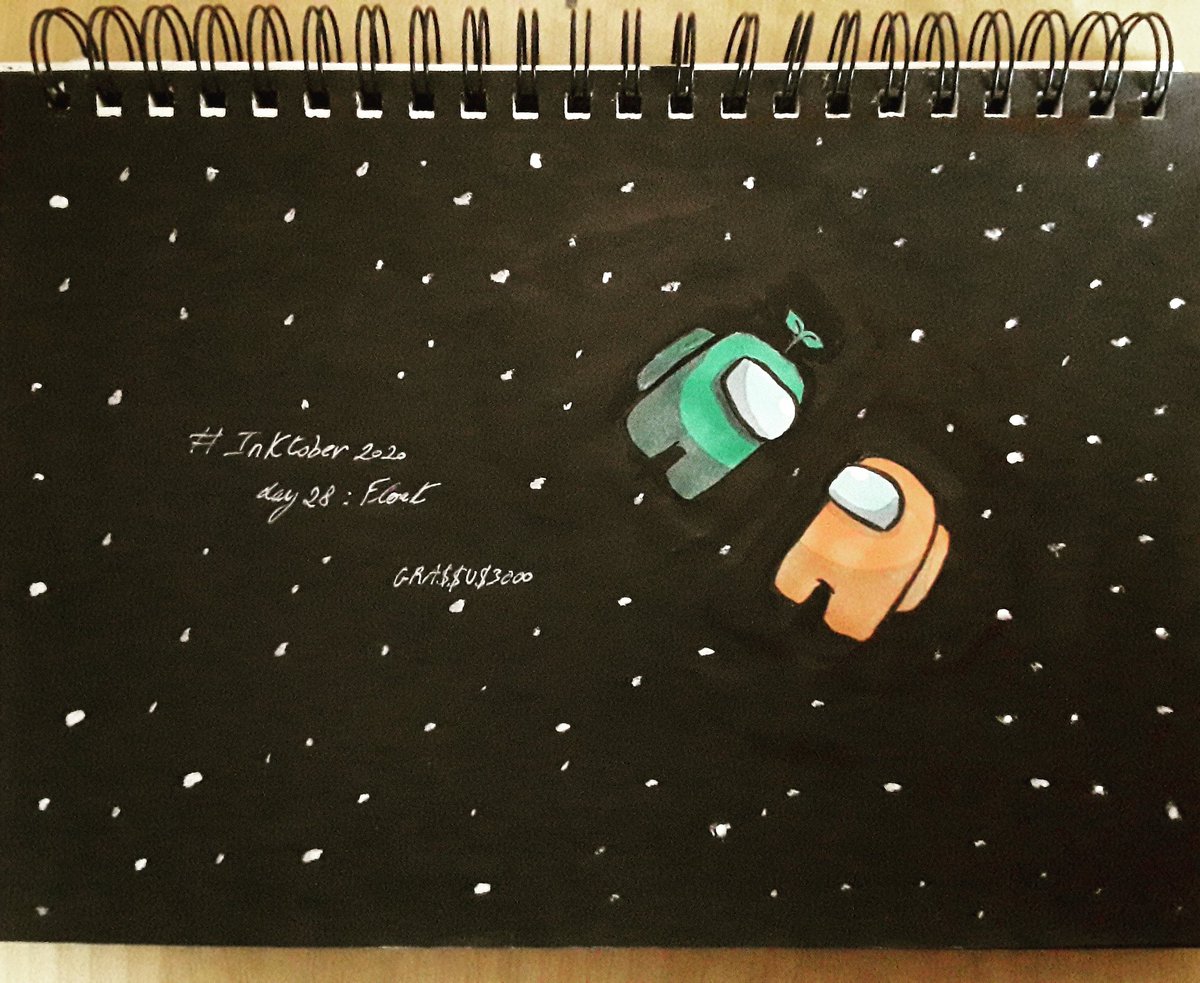 # Inktober 2020
day 28 : Float
GRA$$U$3000